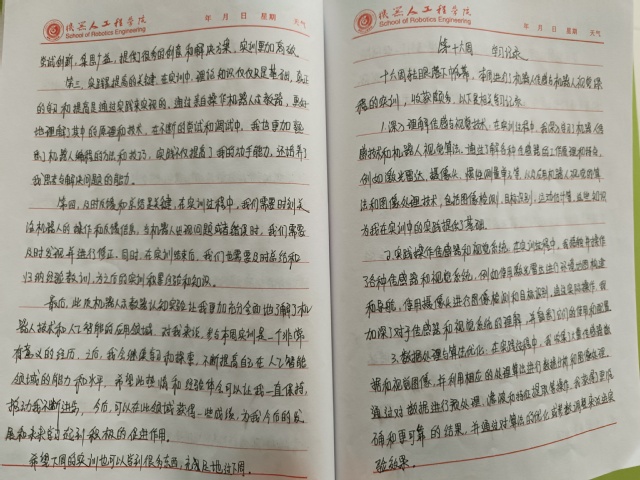 机器人工程学院
School of Robotics Engineering
年 月 日 星期 天气
尝试创新，集思广益，提供很多的创意和解决方案，实训更加高效
第三，实践是提高的关键，在实训中，理论知识仅仅只是基础，真正
的学习和提高是通过实践来实现的，通过亲自操作机器人示教器，更好
地理解了其中的原理和技术，在不断的尝试和调试中，我也更加熟
练了机器人编程的方法和技巧，实践不仅提高了我的动手能力，还培养了
我思考与解决问题的能力。
第四，及时反馈和总结是关键，在实训过程中，我们需要时刻关
注机器人的操作和反馈信息，当机器人出现问题或者错误时，我们需要
及时发现并进行修正，同时，在实训结束后，我们也需要及时总结和
归纳经验教训，为之后的实训积累经验和知识。
最后，此次机器人示教器认知实验让我更加充分全面地了解了机
器人技术和人工智能的应用领域，对我来说，参与本周实训是一个非常
有意义的经历，之后，我会继续学习和探索，不断提高自己在人工智能
领域的能力和水平，希望此热情和经验体会可以让我一直保持，
推动我不断进步，今后，可以在此领域获得一些成绩，为我今后的发
展和未来官起到积极的促进作用。
希望下周的实训也可以学到很多东西，充实地过下周。
机器人工程学院
School of Robotics Engineering
年 月 日 星期 天气
第十六周 学习记录
十六周社日落下帷幕，本周进行了机器人传感与机器人视觉课
程的实训，收获颇多，以下是相关学习记录
1.深入理解传感与视觉技术，在实训过程中，我深入学习了机器人传
感技术和机器人视觉算法，通过了解各种传感器的工作原理和特点，
例如激光雷达，摄像头，惯性测量单元等，以及应用机器人视觉的算
法和图像处理技术，包括图像检测，目标识别，运动估计等，这些知识
为我在实训中的实践提供了基础。
2.实践操作传感器和视觉系统，在实训过程中，我亲自操作
了各种传感器和视觉系统，例如使用激光雷达进行环境地图构建
和导航，使用摄像头进行图像检测和目标识别，通过实际操作，我
加深了对于传感器和视觉系统的理解，并掌握了它们的使用和配置
3.数据处理与算法优化，在实践过程中，我收集了大量传感数
据和视觉图像，并利用相应的处理算法进行数据分析和图像处理，
通过对数据进行预处理，滤波和特征提取等操作，我获得了更准
确和更可靠的结果，并通过对算法的优化或参数调整来改进实
验效果。